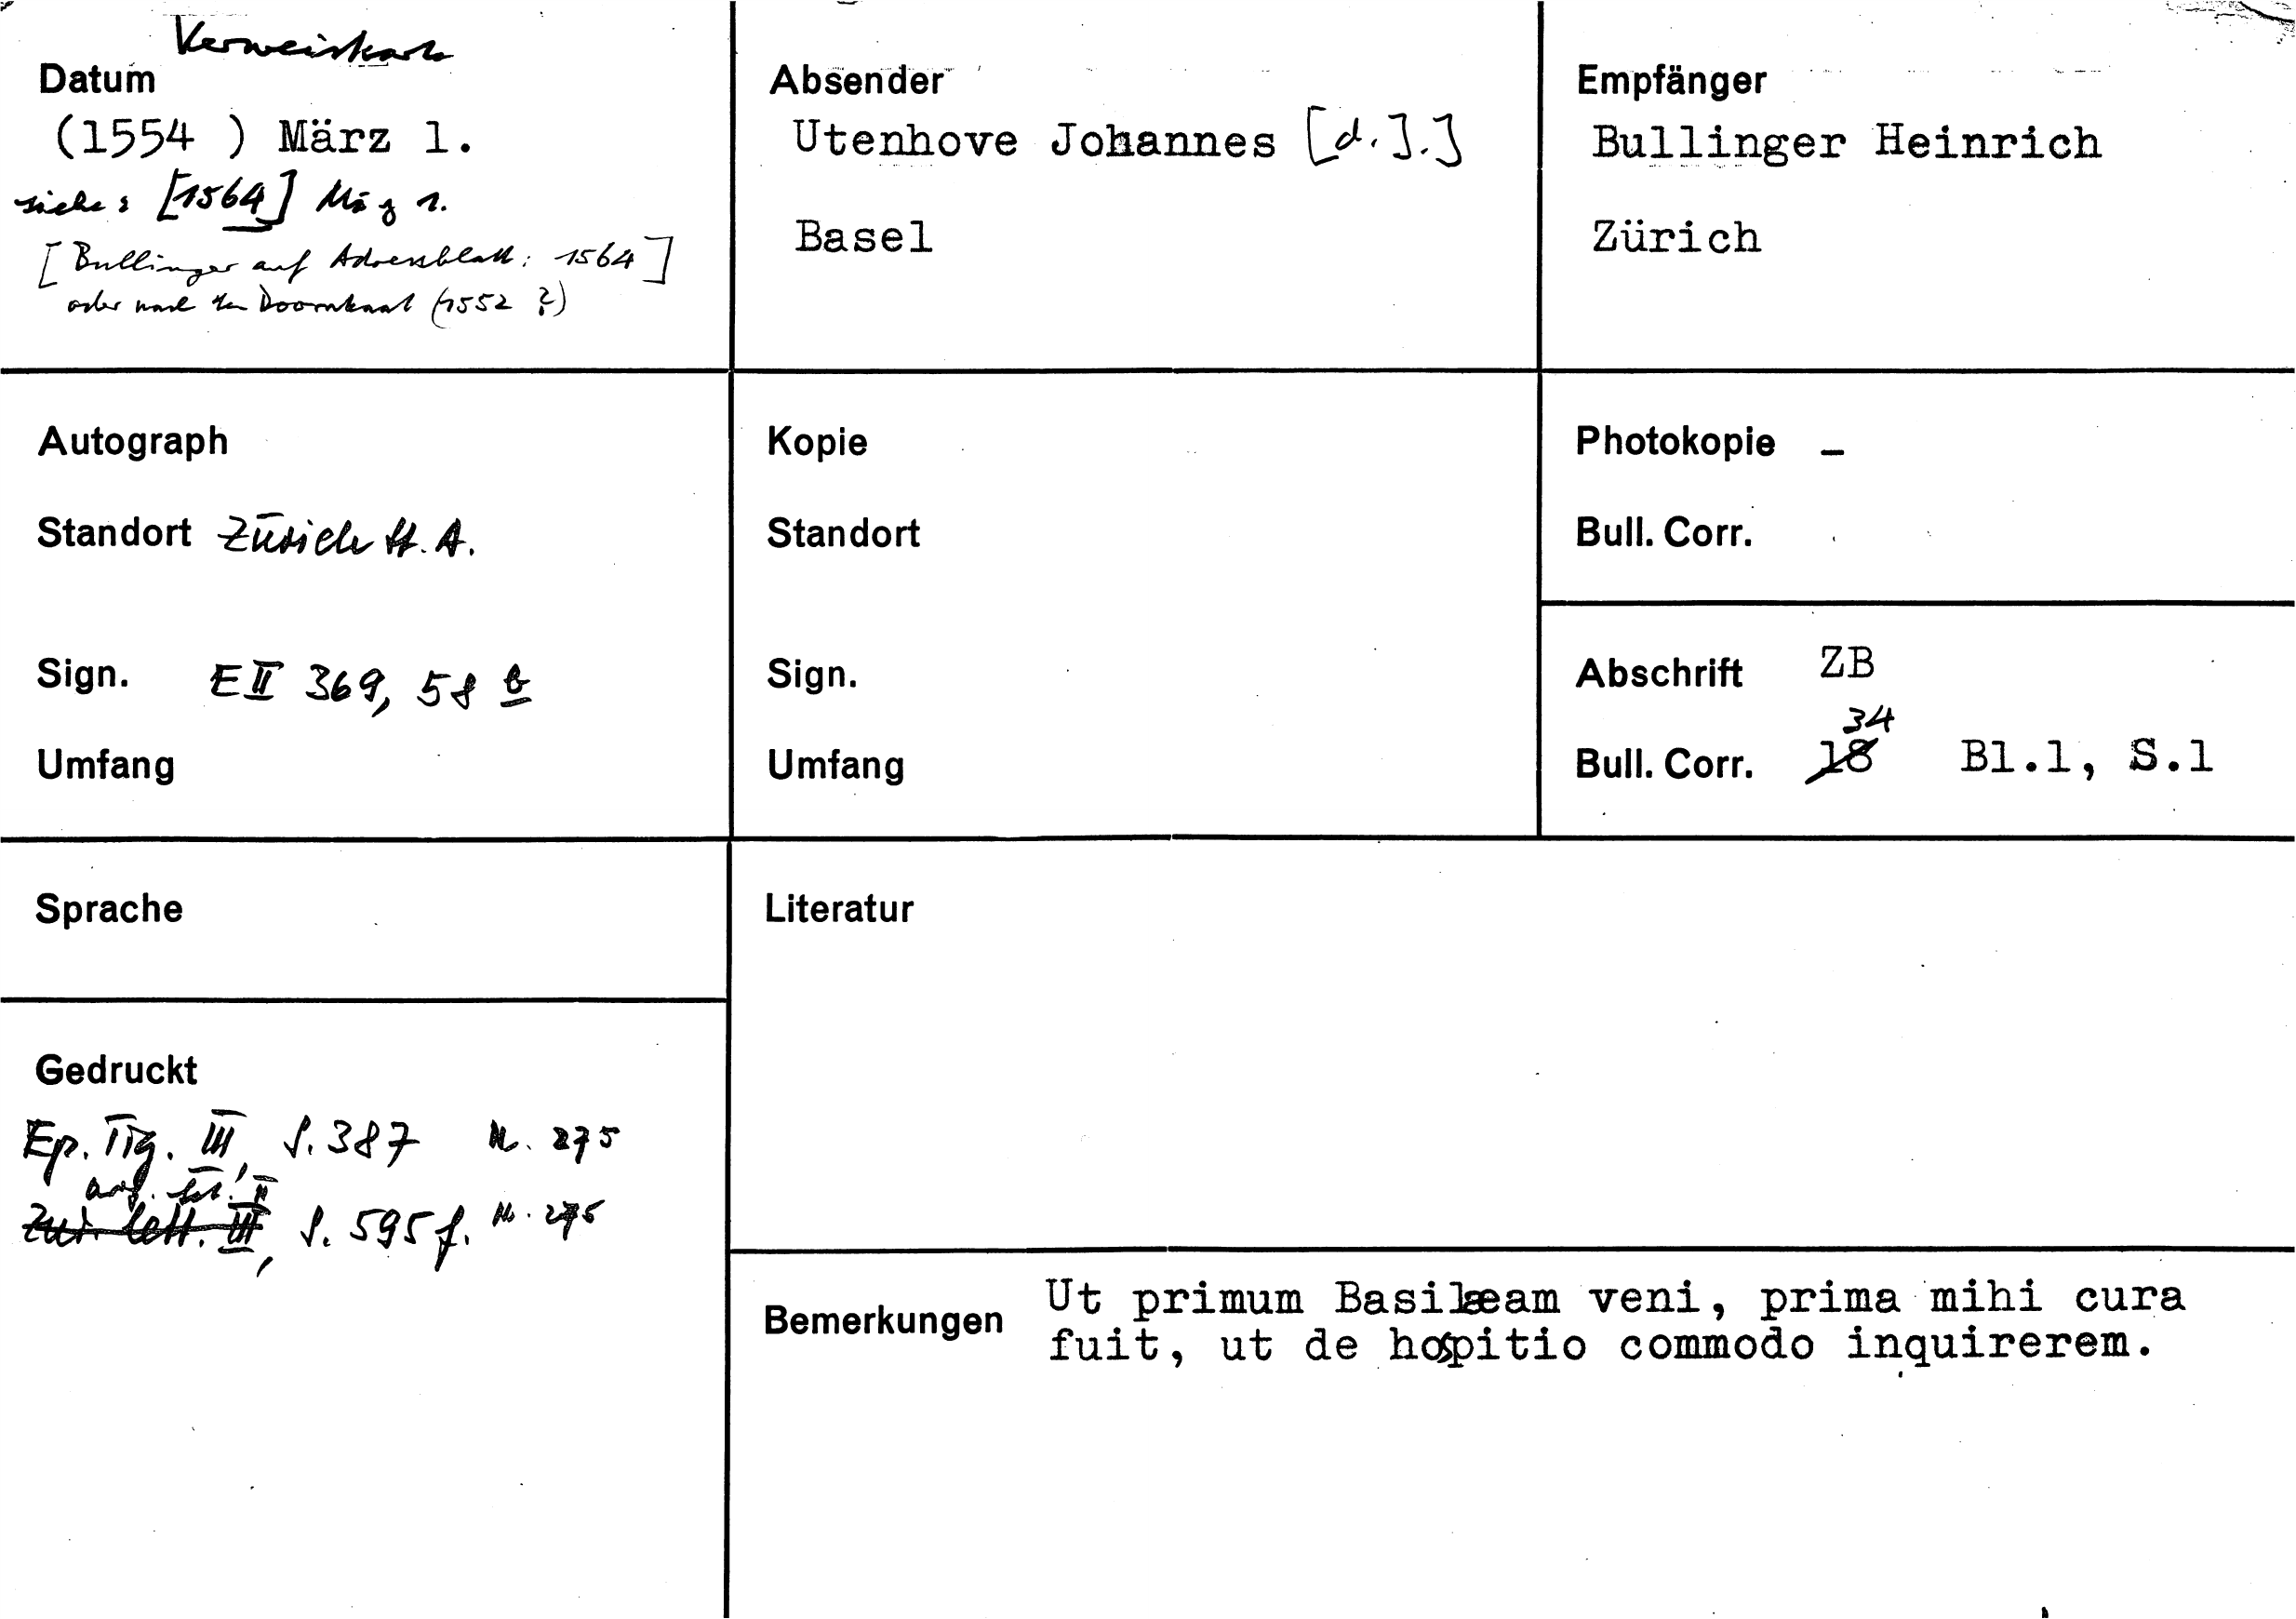 Verweiskarte
Datum
(1554 ) März 1.
siehe: [1564] März 1.
[Bullinger auf Adressblatt: 1564]
oder nach ten Doornkaat (1552 ?)
Absender
Utenhove Johannes [d. J.]
Basel
Empfänger
Bullinger Heinrich
Zürich
Autograph
Standort Zürich St. A.
Sign. E II 369, 58 b
Umfang
Kopie
Standort
Sign.
Umfang
Photokopie –
Bull. Corr.
Abschrift ZB
34
Bull. Corr. 18 Bl.1, S.1
Sprache
Gedruckt
Ep. Tig. III, S. 387 Nr. 275
II
Zür. Lett. III, S. 595 f. Nr. 275
Literatur
Bemerkungen
Ut primum Basileam veni, prima mihi cura
fuit, ut de hospitio commodo inquirerem.